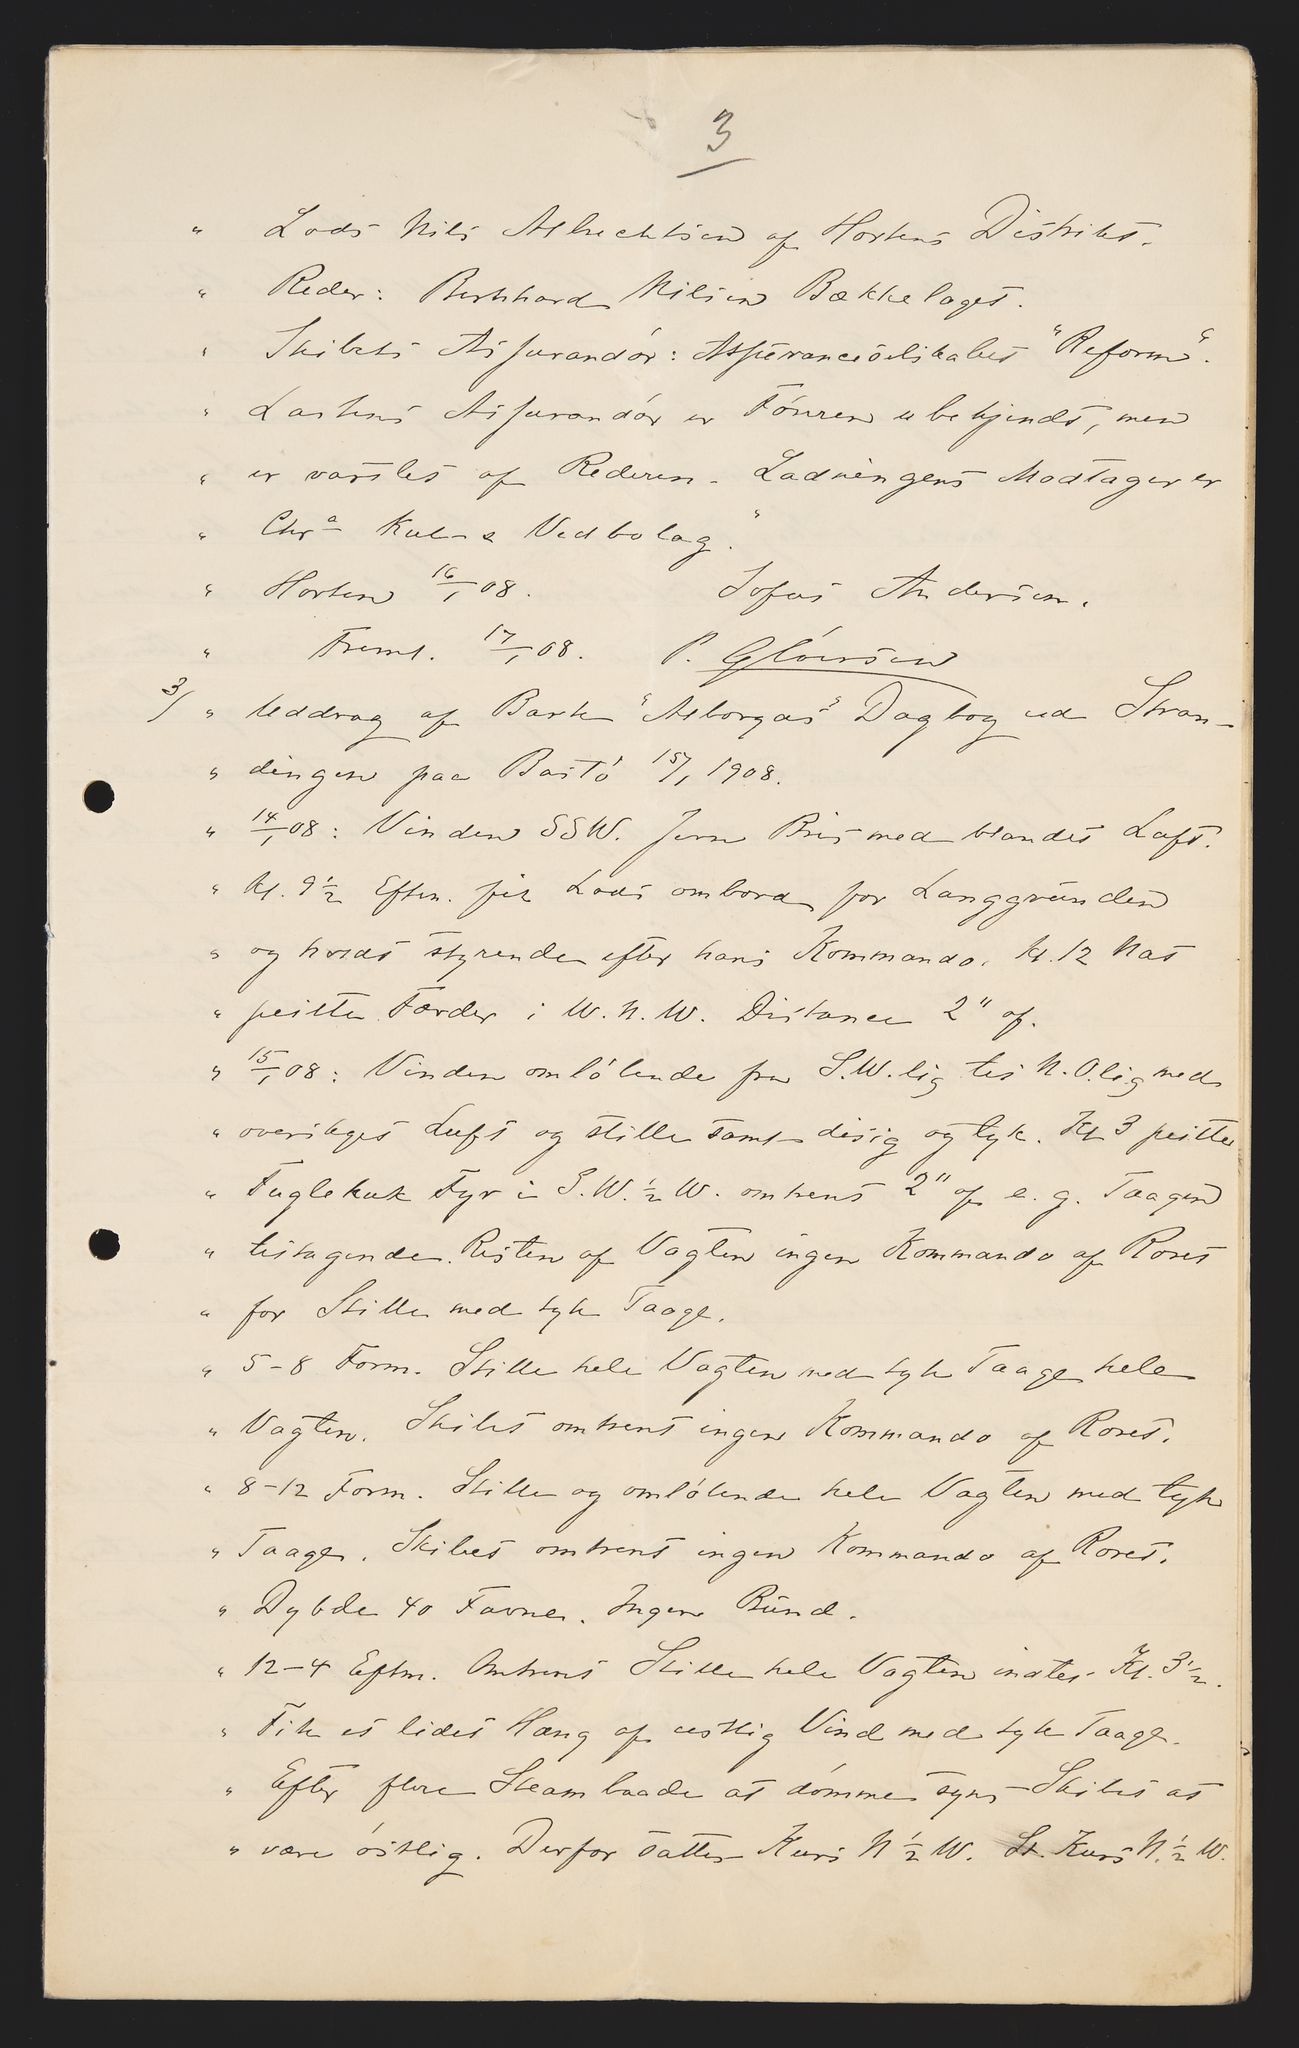 3
" Lods Nils Albrechtsen af Hortens Distrikt.
" Reder: Bernhard Nilsen Bækkelaget.
" Skibets Assurandör: Assuranceselskabet "Reform".
" Lastens Assurandör er Föreren ubekjendt, men
" er varslet af Rederen. Ladningens Modtager er
" Chr.a Kul- & Vedbolag."
" Horten 16/1 08. Sofus Andersen.
" Freml. 17/1 08. P. Glöersen
3/ " Uddrag af Bark "Alborgas" Dagbog ved Stran-
" dingen paa Bastö 15/1 1908.
" 14/1 08: Vinden SSW. Jevn Bris med blandet Luft.
" Kl. 9 1/2 Eftm. fik Lods ombord for Langgrunden
" og holdt styrende efter hans Kommando. Kl. 12 Nat
" peilte Færder i W.N.W. Distance 2" af.
" 15/1 08: Vinden omlöbende fra S.W.lig til N.O.lig med
" overskyet Luft og stille samt disig og tyk. Kl 3 peilte
" Fuglehuk Fyr i S.W. 1/2 W. omtrent 2" af e. g. Taagen
" tiltagende. Resten af Vagten ingen Kommando af Roret
" for Stille med tyk Taage.
" 5-8 Form. Stille hele Vagten med tyk Taage hele
" Vagten. Skibet omtrent ingen Kommando af Roret.
" 8-12 Form. Stille og omlöbende hele Vagten med tyk
" Taage. Skibet omtrent ingen Kommando af Roret.
" Dybde 40 Favne. Ingen Bund.
" 12-4 Eftm. Omtrent Stille hele Vagten indtil Kl. 3 1/2.
" Fik et lidet Hæng af vestlig Vind med tyk Taage.
" Efter flere Steambaade at dömme syns Skibet at
" være östlig. Derfor sattes Kurs N 1/2 W. St. Kurs N. 1/2 W.